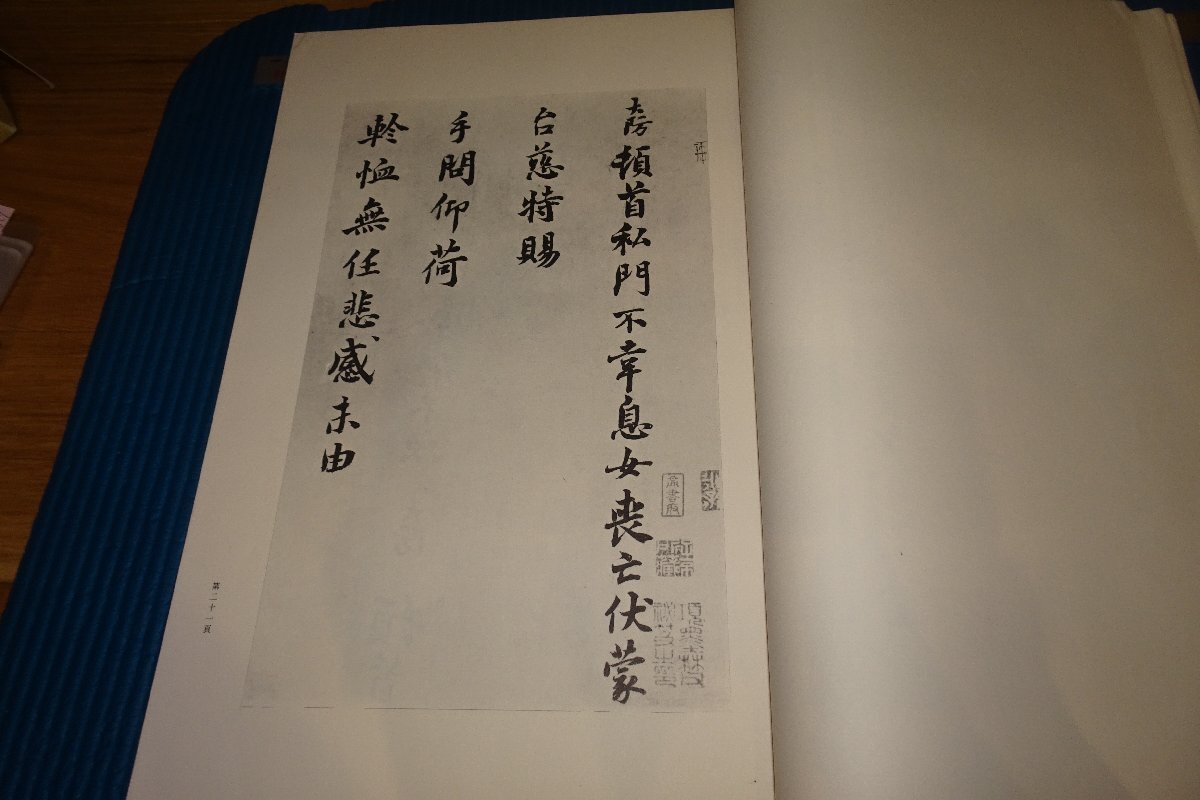 大防頓首私門不幸息女喪亡伏蒙
台慈特賜
手問仰荷
軫恤無任悲感未由
第二十一頁